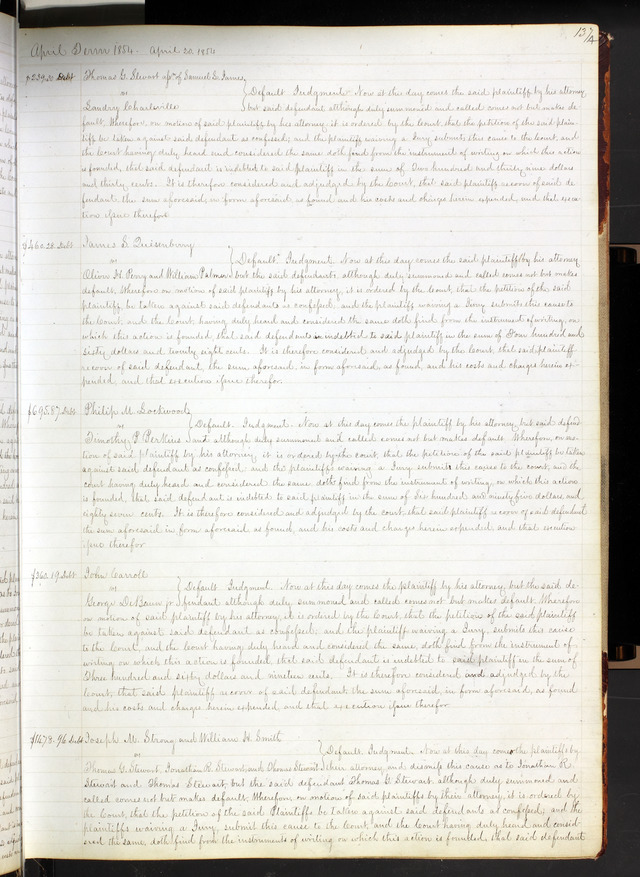 137
April Term 1854. April 20. 1854
$239.30 Debt Thomas G. Stewart of Samuel G. James
vs } Default Judgment. Now at this day comes the said plaintiff by his attorney
Landry Charlsville but said defendant although duly summoned and called comes not but makes de-
fault, therefore, on motion of said plaintiff, by his attorney it is ordered by the Court that the petition of the said plain-
tiff be taken against said defendant as confessed; and the plaintiff waiving a Jury submits this cause to the Court, and
the Court having duly heard and considered the same doth find from the instrument of writing on which this action
is founded, that said defendant is indebted to said plaintiff in the sum of Two hundred and thirty nine dollars
and thirty cents. It is therefore considered and adjudged by the Court, that said plaintiff recover of said de-
fendant the sum aforesaid, in form aforesaid as found and his costs and charges herein expended, and that execu-
tion issue therefor
$460.28 Debt James S. Quisenbury
vs } Default Judgment. Now at this day comes the said plaintiff by his attorney
Oliver H. Perry and William Palmer but the said defendants, although duly summoned and called comes not but makes
default, Wherefore on motion of said plaintiff by his attorney, it is ordered by the Court, that the petition of the said
plaintiff be taken against said defendants as confessed, and the plaintiff waiving a Jury submits this cause to
the Court, and the Court having duly heard and considered the same doth find from the instrument of writing, on
which this action is founded that said defendants indebted to said plaintiff in the sum of Four hundred and
sixty dollars and twenty eight cents. It is therefore considered and adjudged by the Court, that said plaintiff
recover of said defendant, the sum aforesaid, in form aforesaid, as found, and his costs and charges herein ex-
pended, and that execution issue therefor.
$695.87 Debt Philip M. Lockwood
vs } Default. Judgment. Now at this day comes the plaintiff by his attorney, but said defend-
Timothy P. Perkins ant although duly summoned and called comes not but makes default. Wherefore, on mo-
tion of said plaintiff by his attorney it is ordered by the Court, that the petition of the said plaintiff be taken
against said defendant as confessed. and the plaintiff waiving a Jury submits this cause to the court, and the
court having duly heard and considered the same doth find from the instrument of writing, on which this action
is founded, that said defendant is indebted to said plaintiff in the sum of Six hundred and ninety five dollars, and
eighty seven cents. It is therefore considered and adjudged by the court that said plaintiff recover of said defendant
the sum aforesaid in form aforesaid as found, and his costs and charges herein expended. and that execution
issue therefor
$360.19 Debt John Carroll
vs } Default. Judgment. Now at this day comes the plaintiff by his attorney, but the said de-
George DeBaun jr. fendant although duly summoned and called comes not but makes default. Wherefore
on motion of said plaintiff by his attorney, it is ordered by the Court, that the petition of the said plaintiff
be taken against said defendant as confessed. and the plaintiff waiving a Jury, submits this cause
to the Court, and the Court having duly heard and considered the same, doth find from the instrument of
writing on which this action is founded, that said defendant is indebted to said plaintiff in the sum of
Three hundred and sixty dollars and nineteen cents. It is therefore considered and adjudged by the
Court, that said plaintiff recover of said defendant the sum aforesaid, in form aforesaid, as found
and his costs and charges herein expended and that execution issue therefor.
$1478.96 Debt Joseph M. Strong and William H. Smith
vs } Default. Judgment. Now at this day comes the plaintiffs by
Thomas G. Stewart, Jonathan R. Stewart, and Thomas Stewart their attorney, and dismiss this cause as to Jonathan R.
Stewart and Thomas Stewart, but the said defendant Thomas G. Stewart. although duly summoned and
called comes not but makes default, Wherefore on motion of said plaintiffs by their attorney, it is ordered by
the Court, that the petition of the said Plaintiffs be taken against said defendants as confessed, and the
plaintiffs waiving a Jury, submit this cause to the Court, and the Court having duly heard and consid-
ered the same, doth find from the instruments of writing on which this action is founded, that said defendant